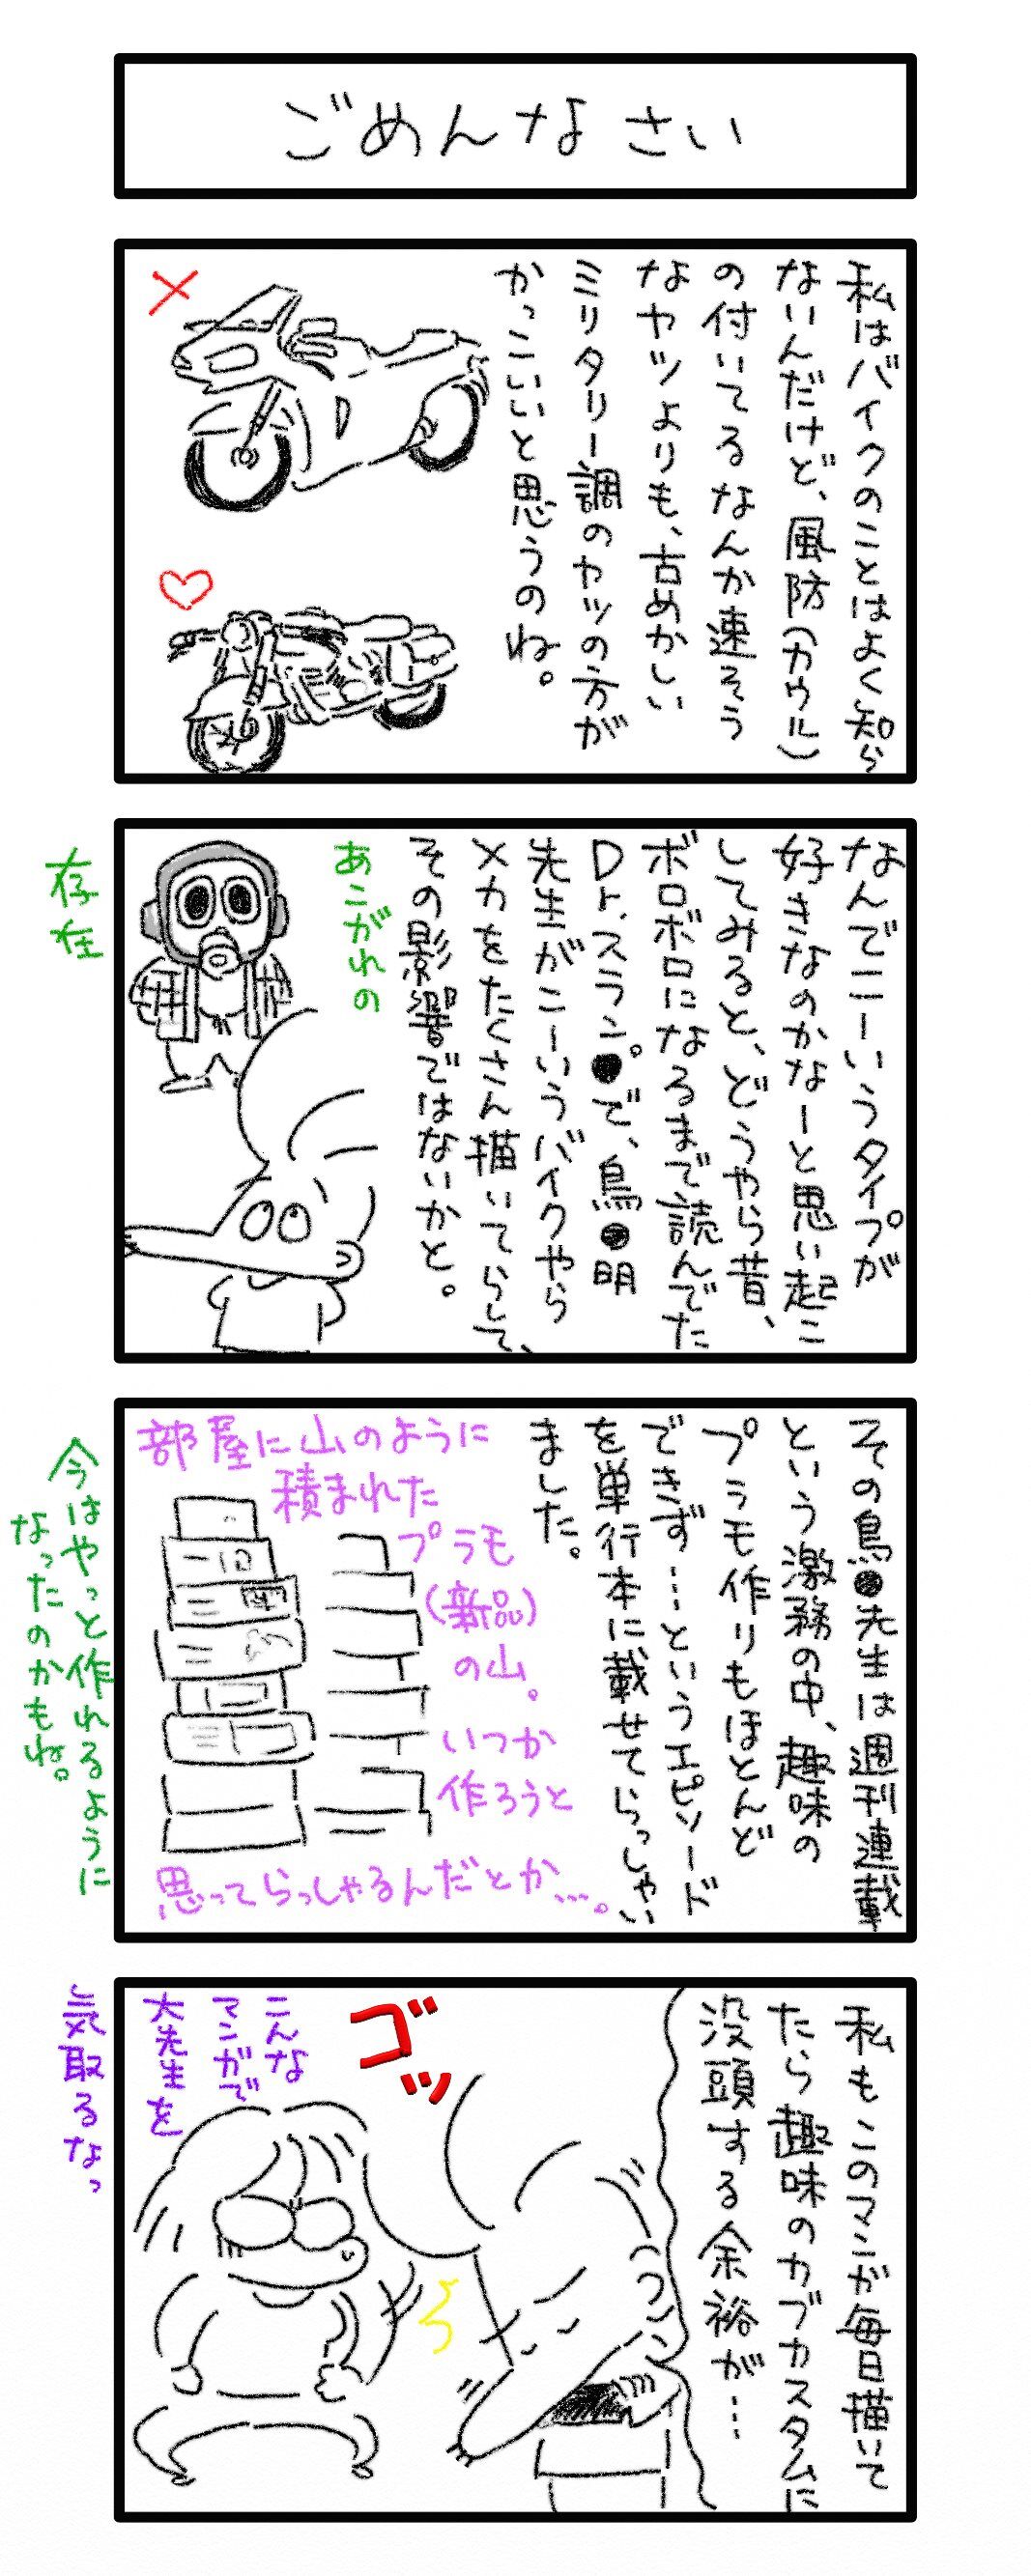 ごめんなさい
私はバイクのことはよく知ら
ないんだけど、風防(カウル)
の付いてるなんか速そう
なヤツよりも、古めかしい
ミリタリー調のヤツの方が
かっこいいと思うのね。
なんでこーいうタイプが
好きなのかなーと思い起こ
してみると、どうやら昔、
ボロボロになるまで読んでた
Dr.スラン●゜で、鳥●明
先生がこーいうバイクやら
メカをたくさん描いてらして、
その影響ではないかと。
あこがれの
存在
その鳥●先生は週刊連載
という激務の中、趣味の
プラモ作りもほとんど
できず…というエピソード
を単行本に載せてらっしゃい
ました。
部屋に山のように
積まれた
プラモ
(新品)
の山。
いつか
作ろうと
思ってらっしゃるんだとか…。
今はやっと作れるように
なったのかもね。
私もこのマンガ毎日描いて
たら趣味のカブカスタムに
没頭する余裕が…
ゴッ
こんな
マンガで
大先生を
気取るなっ